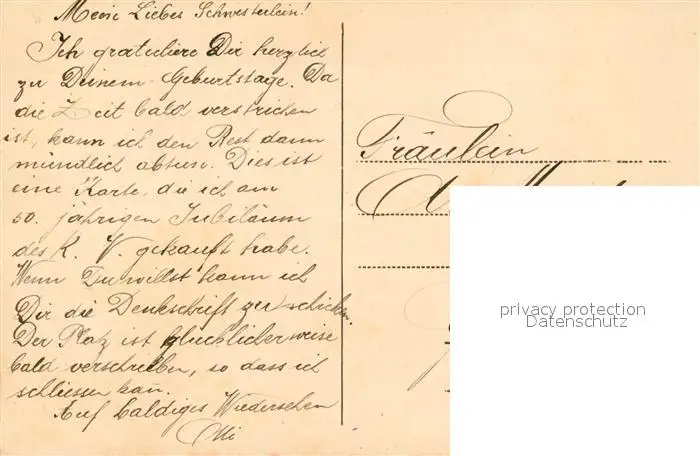 Mein Liebes Schwesterlein!
Ich gratuliere Dir herzlich
zu Deinem Geburtstage. Da
die Zeit bald verstrichen
ist, kann ich den Rest dann
mündlich abtun. Dies ist
eine Karte, die ich am
50. jährigen Jubiläum
des K. V. gekauft habe.
Wenn Du willst kann ich
Dir die Denkschrift zuschicken.
Der Platz ist glücklicherweise
bald verschrieben, so dass ich
schliessen kann.
Auf baldiges Wiedersehen
Fräulein
privacy protection
Datenschutz